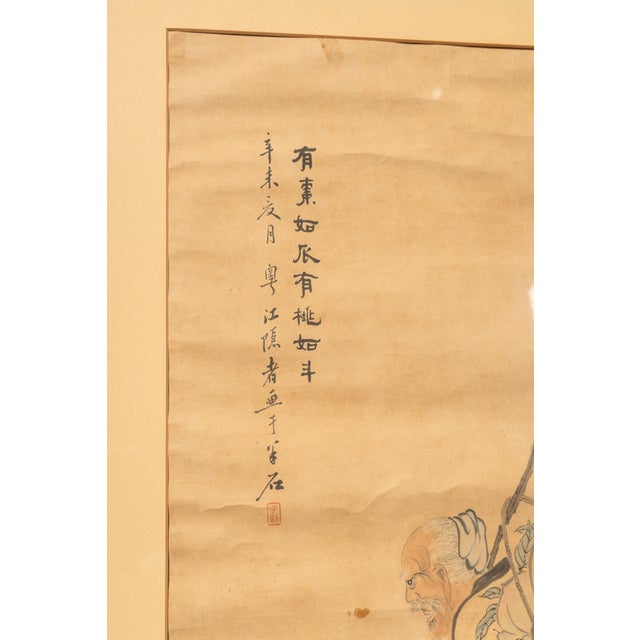 有棗如瓜有桃如斗
辛未夏月粵江隱者畫于半石